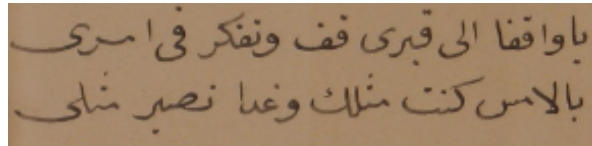 ياواقفا الى قبرى قف وتفكر فى امرى
بالامس كنت مثلك وغدا تصير مثلى